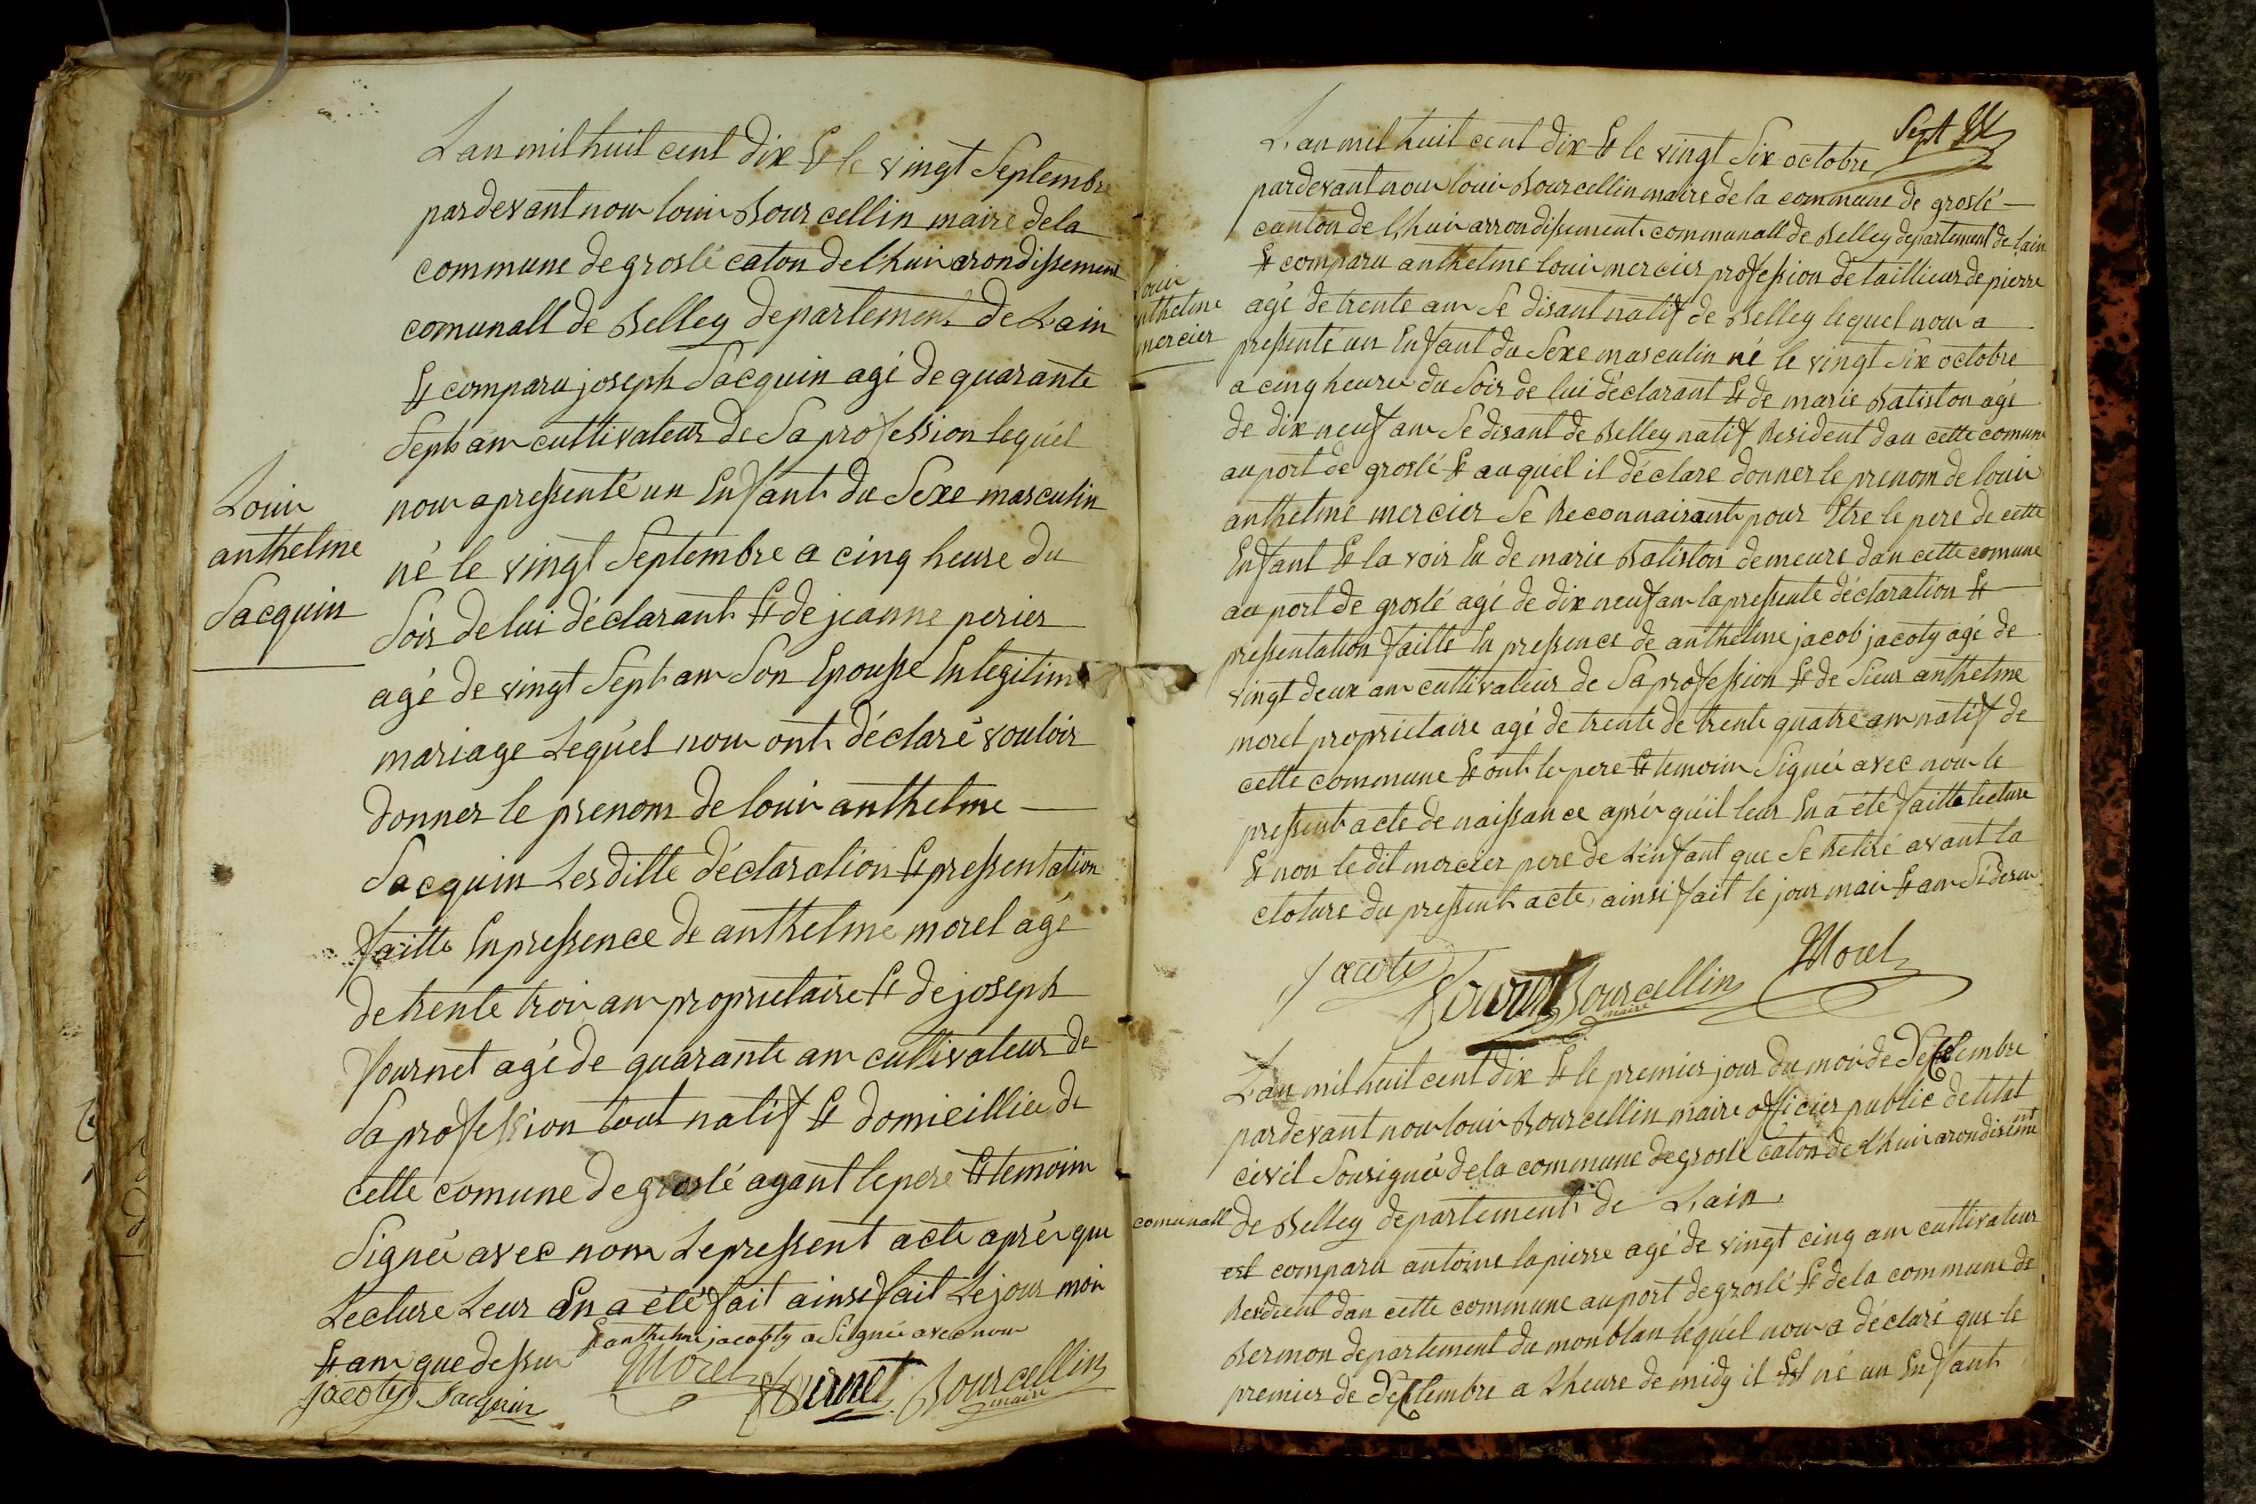 Lan mil huit cent dix & le vingt Septembre
pardevant nous louis Bourcellin maire de la
commune de groslé caton de lhuis arondissement
comunall de Belley departement de Lain
& comparu joseph Jacquin agé de quarante
Sept ans cultivateur de Sa profession lequel
nous a pressenté un Enfant du Sexe masculin
né le vingt Septembre a cinq heure du
Soir de lui déclarant & de jeanne perier
agé de vingt Sept ans Son Epousse En legitime
mariage Lequel nous ont déclaré vouloir
donner le prenom de louis anthelme
Jacquin Les ditte déclaration & pressentation
faitte En pressence de anthelme morel agé
de trente trois ans propriétaire & de joseph
fournet agé de quarante ans cultivateur de
Sa profession tout natif & domicilliée de
cette comune de groslé ayant le pere & temoins
Signée avec nous Le pressent acte aprés que
Lecture Leur En a été fait ainsi fait Le jour mois
& ans que dessus & anthelme jacotty a Signée avec nous
jacoty Jacquin Morel fournet Bourcellin
maire
Louis
anthelme
Jacquin
Sept
L'an mil huit cent dix & le vingt Six octobre
pardevant nous louis Bourcellin maire de la commune de groslé
canton de lhuis arrondissement communall de Belley departement de lain
& comparu anthelme louis mercier profession de taillieur de pierre
agé de trente ans Se disant natif de Belley lequel nous a
pressenté un Enfant du Sexe masculin né le vingt Six octobre
a cinq heures du Soir de lui déclarant & de marie Batiston agé
de dix neuf ans Se disant de Belley natif Resident dans cette comune
au port de groslé & auquel il déclare donner le prenom de louis
anthelme mercier Se Reconnaisant pour Etre le pere de cette
Enfant & la voir Eu de marie Batiston demeure dans cette comune
au port de groslé agé de dix neuf ans la pressente déclaration &
pressentation faitte En pressence de anthelme jacob jacoty agé de
vingt deux ans cultivateur de Sa profession & de Sieur anthelme
morel proprietaire agé de trente de trente quatre ans natif de
cette commune & ont le pere & temoins Signée avec nous le
pressent acte de naissance aprés qu'il leur En a été faitte lecture
& non le dit mercier pere de L'enfant que Se Retiré avant la
cloture du pressent acte, ainsi fait le jour mois & ans Si desus
jacoty fournet Bourcellin Morel
maire
Louis
anthelme
mercier
Lan mil huit cent dix & le premier jour du mois de Decembre
pardevant nous louis Bourcellin maire officier public de létat
civil Sousignée de la commune de groslé caton de lhuis arondisement
comunall de Belley departement de Lain,
est comparu antoine lapierre agé de vingt cinq ans cultivateur
Resident dans cette commune au port de groslé & de la commune de
Sermon departement du monblan lequel nous a déclaré que le
premier de Decembre a L'heure de midy il Est né un Enfant